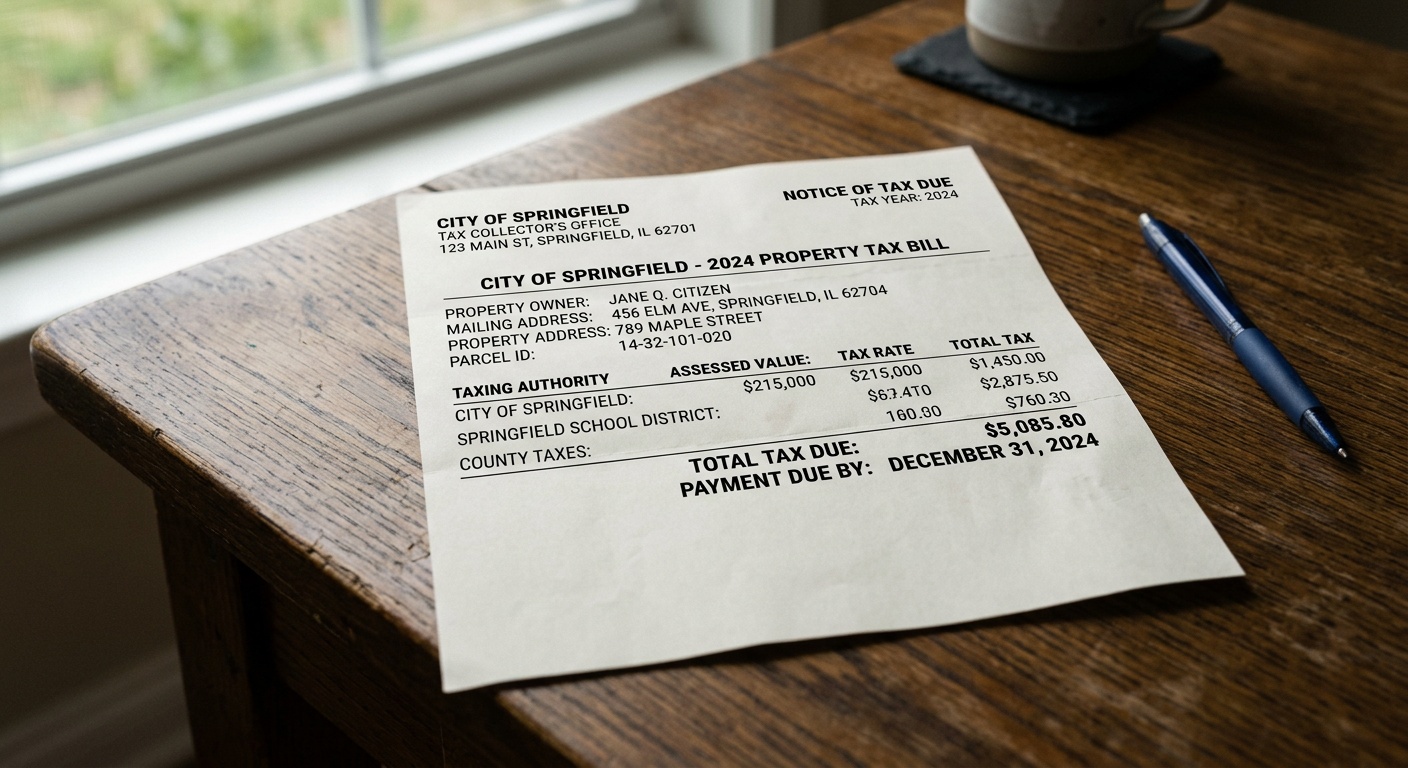 CITY OF SPRINGFIELD
TAX COLLECTOR'S OFFICE
123 MAIN ST, SPRINGFIELD, IL 62701
NOTICE OF TAX DUE
TAX YEAR: 2024
CITY OF SPRINGFIELD - 2024 PROPERTY TAX BILL
PROPERTY OWNER: JANE Q. CITIZEN
MAILING ADDRESS: 456 ELM AVE, SPRINGFIELD, IL 62704
PROPERTY ADDRESS: 789 MAPLE STREET
PARCEL ID: 14-32-101-020
TAXING AUTHORITY ASSESSED VALUE: TAX RATE TOTAL TAX
CITY OF SPRINGFIELD: $215,000 $215,000 $1,450.00
SPRINGFIELD SCHOOL DISTRICT: $2,875.50
COUNTY TAXES: $760.30
TOTAL TAX DUE: $5,085.80
PAYMENT DUE BY: DECEMBER 31, 2024